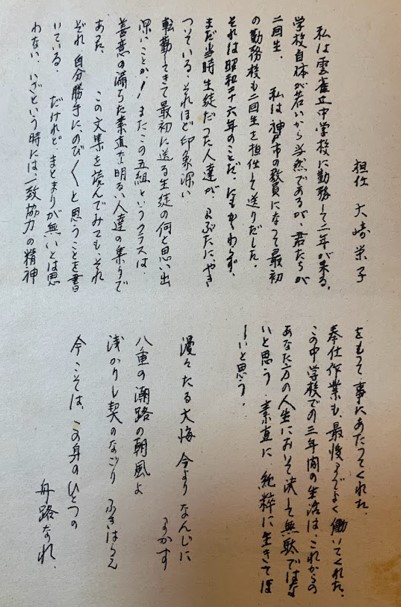 担任 大崎栄子
私は雲雀丘中学校に勤務して二年が来る。
学校自体が若いから当然であるが、君たちが
二回生。 私は神戸市の教員になって最初
の勤務校も二回生を担任して送りだした。
それは昭和二十六年のことだ、にもかかわらず、
まだ当時生徒だった人達が、まぶたに、やき
ついている。それほど印象深い
転勤してきて最初に送る生徒の何と思い出
深いことか！ またこの五組というクラスは
善意の溢ちた素直で明るい人達の集りで
あった。 この文集を読んでみてもそれ
ぞれ自分勝手にのびくと思うことを書
いている。 だけれどまとまりが無いとは思
わない、いざという時には一致協力の精神
をもって事にあたってくれた。
奉仕作業も、最後までよく働いてくれた。
この中学校での三年間の生活は、これからの
あなた方の人生において決して無駄ではな
いと思う 素直に、純粋に生きてほ
しいと思う。
漫々たる大海 今よりなんじに
まかす
八重の潮路の朝風よ
浅かりし契のなごり ふきはらえ
今こそは、この身のひとつの
舟路なれ。